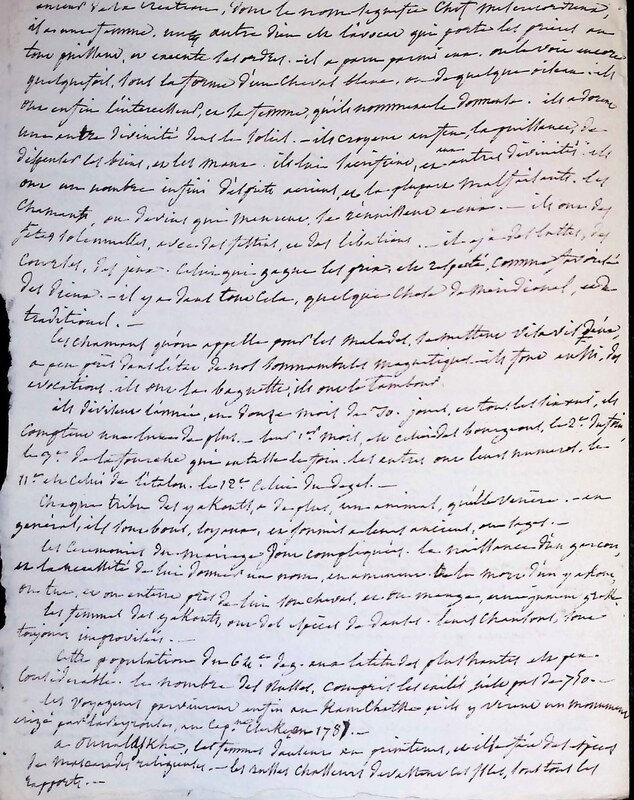 de la création, dont le nom signifie chef miséricordieux,
il a une femme, un autre dieu elevocer qui porte les prieres au
tout puissant, et execute les ordres. il a paru parmi eux. on le voit encore
quelquefois, sous la forme d'un cheval blanc, ou de quelque oiseau. ils
ont enfin l'intercesseur, et la femme, qu'ils nomment la donnante. ils adorent
une autre divinité dans le soleil. — ils croyent enfin, la puissance, de
dispenser les biens, et les maux. ils lui sacrifient, et aux autres divinités. ils
ont un nombre infini d'esprits aeriens, et la plupart malfaisants. les
chamants ou devins qui meurent, se reunissent a eux. — ils ont des
fêtes solennelles, avec des festins, et des libations. — il y a des luttes, des
courses, des jeux. celui qui gagne les prix, est respecté, comme favorisé
des dieux. — il y a dans tout cela, quelque chose de méridional, et de
traditionel. —
les chamans qu'on appelle pour les malades, se mettent vis a vis d'eux,
a peu près dans l'état de nos somnambules magnetiques. ils font aussi, des
evocations. ils ont la baguette, ils ont le tambour.
ils divisent l'année, en douze mois de 30. jours, et tous les six ans, ils
comptent une lune de plus. — leur 1er mois, est celui des bourgeons, le 2e. du foin
le 3e. de la fourche qui entasse le foin. les autres ont leurs numeros. le
11e. est celui de l'etalon. le 12e. celui du degel. —
Chaque tribu des yakouts, a de plus, un animal, qu'elle venère. — en
general, ils sont bons, loyaux, et soumis a leurs anciens, ou sages. —
les ceremonies du mariage sont compliquées. la naissance d'un garçon,
et la necessité de lui donner un nom, en amenent. De la mort d'un yakout,
on tue, et on enterre près de lui son cheval, et on mange, une jument grasse.
les femmes des yakouts, ont des espèces de danses. leurs chansons, sont
toujours improvisées. —
Cette population du 64e. deg. aux latitudes plus hautes, est peu
considerable. le nombre des Russes, compris les exilés, n'est pas de 750. —
les voyageurs parvinrent enfin au Kamchatka, et ils y virent un monument
erigé par la Peyrouse, au Cap.ne Clerke, en 1787. —
a ounalashka, les femmes dansent au printems, et il se fait des espèces
de mascarades religieuses. — les russes chasseurs devastent ces isles, sous tous les
rapports. —